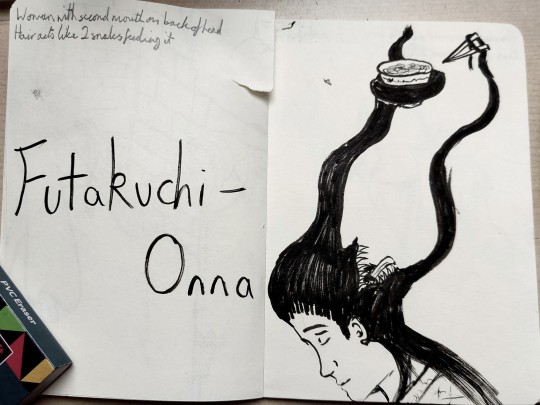 Woman with second mouth on back of head
Hair acts like 2 snakes feeding it
Futakuchi-
Onna
PVC Eraser